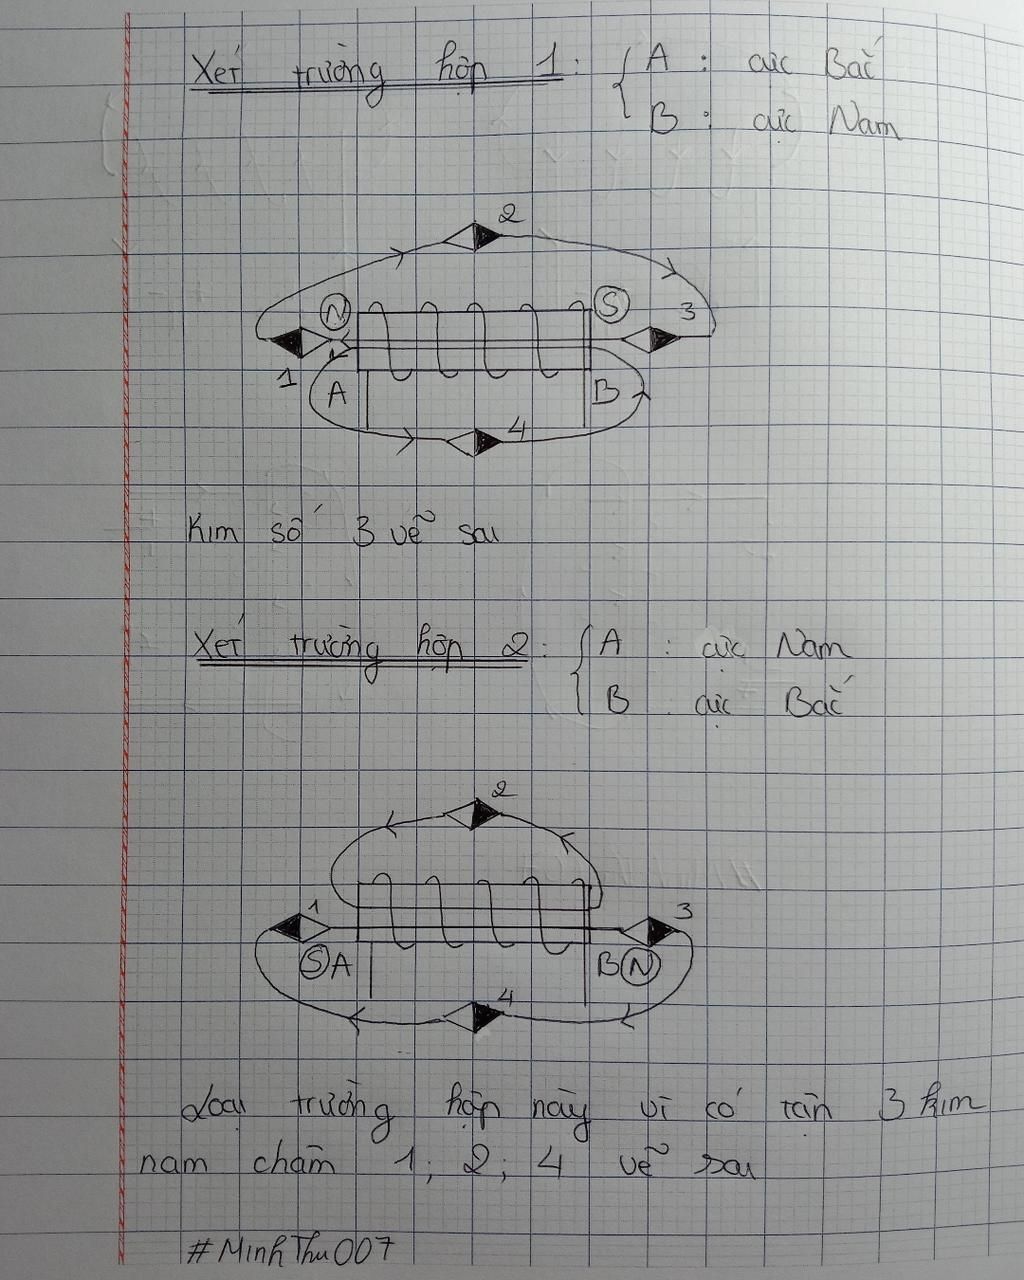 Xét trường hợp 1: { A : cực Bắc
B : cực Nam
2
N
S
3
1
A
B
4
Kim số 3 vẽ sai
Xét trường hợp 2: { A : cực Nam
B : cực Bắc
2
1
3
S A
B N
4
Loại trường hợp này vì có tận 3 kim
nam châm 1; 2; 4 vẽ sai
#MinhThu007